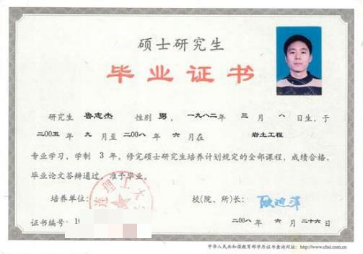 硕士研究生
毕业证书
研究生 鲁志杰 性别 男，一九八二年 三 月 八 日生，于
二〇〇五年 九 月至二〇〇八年 六 月在 岩土工程
专业学习，学制 3 年，修完硕士研究生培养计划规定的全部课程，成绩合格，
毕业论文答辩通过，准予毕业。
培养单位： 校(院、所)长：
证书编号：1 二〇〇八年 六 月二十六日
中华人民共和国教育部学历证书查询网址：http://www.chsi.com.cn